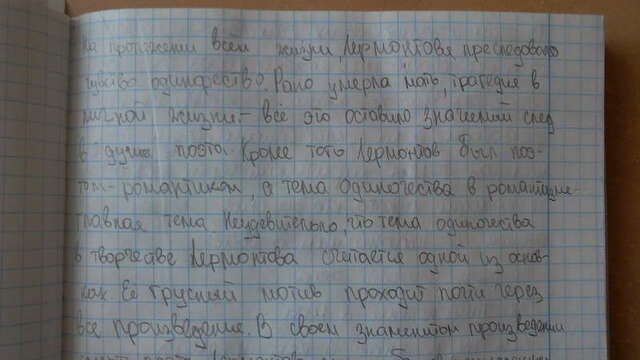 на протяжении всей жизни, Лермонтова преследовало
чувство одиночество. Рано умерла мать, трагедия в
личной жизни – всё это оставило значений след
в душе поэта. Кроме того Лермонтов был поэ-
том-романтиком, а тема одиночества в романтизме-
главная тема Неудевительно, что тема одиночества
в творчестве Лермонтова считается одной из основ-
ных. Её грусный мотив проходит почти через
все произведение. В своём знаменитом произведении